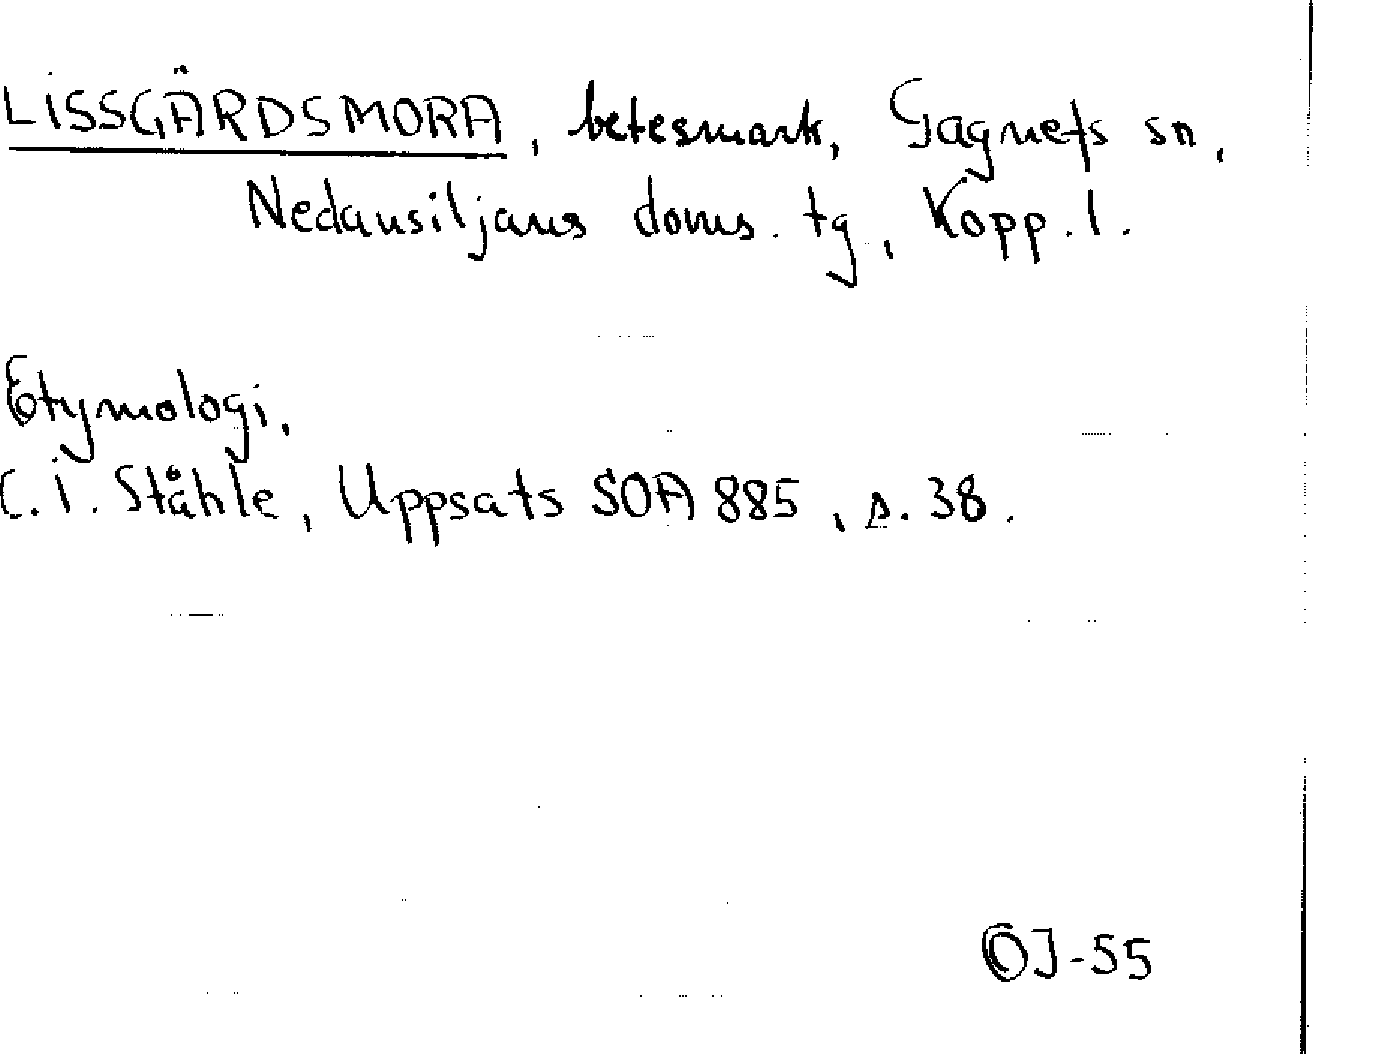 LISSGÄRDSMORA, betesmark, Gagnefs sn,
Nedansiljans doms. tg, Kopp. l.
Etymologi.
C. I. Ståhle, Uppsats SOA 885, s. 38.
OJ-55